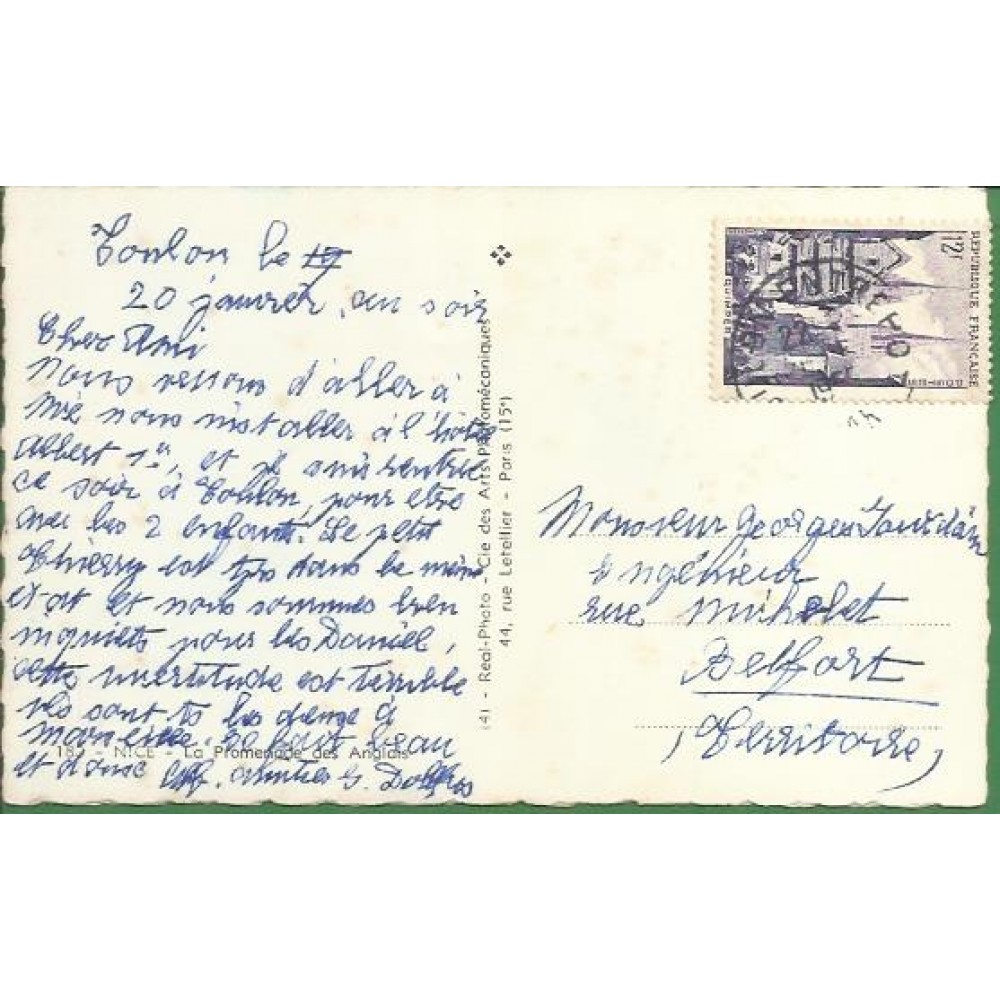 Toulon le 19
20 janvier, au soir
Cher Ami
nous venons d'aller à
Nice nous installer à l'hôtel
Albert 1er, et je suis rentré
ce soir à Toulon, pour être
avec les 2 enfants. Le petit
Thierry est tjrs dans le même
état et nous sommes bien
inquiets pour les Daniel,
cette incertitude est terrible
ils sont ts les deux à
Marseille. Il fait beau
et doux amitiés G. Dollfus
183 - NICE - La Promenade des Anglais
(4) - Réal-Photo - Cie des Arts Photomécaniques
44, rue Letellier - Paris (15e)
REPUBLIQUE FRANÇAISE
12f
QUIMPER
Monsieur Georges
Ingénieur
rue Michelet
Belfort
(Territoire)